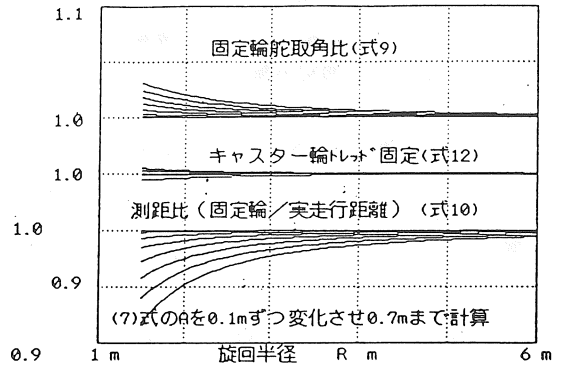 1.1
固定輪舵取角比(式9)
1.0
キャスター輪トレッド固定(式12)
1.0
測距比(固定輪/実走行距離) (式10)
1.0
0.9
(7)式のAを0.1mずつ変化させ0.7mまで計算
0.9 1 m 旋回半径 R m 6 m